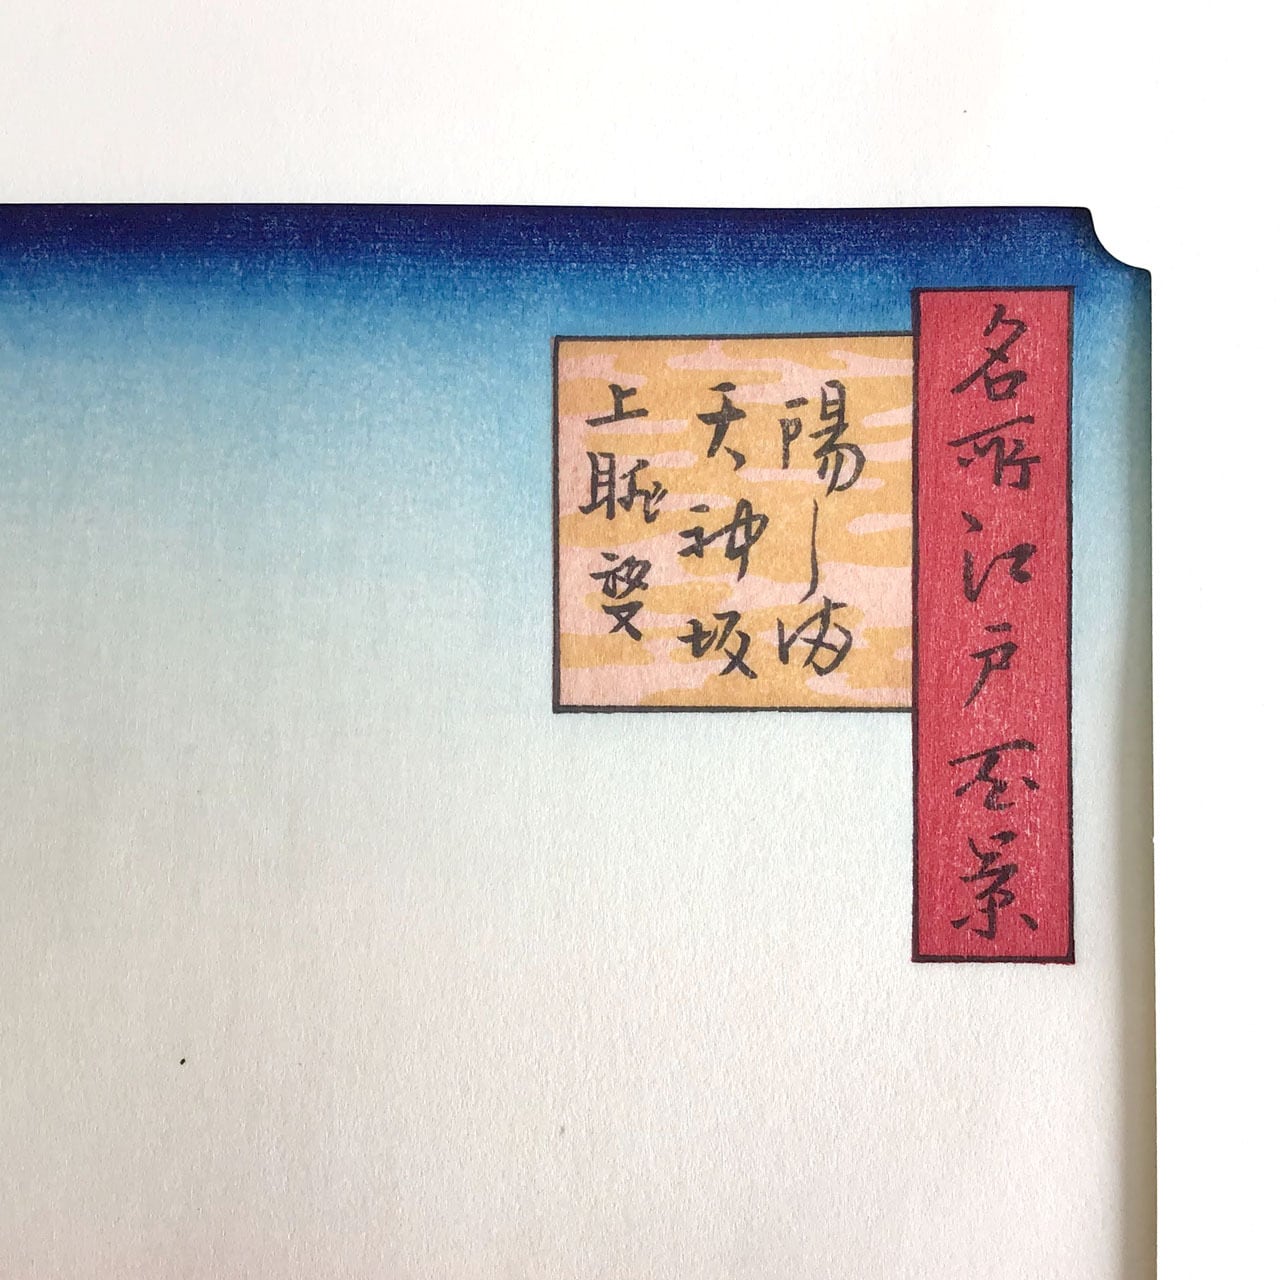 名所江戸百景
陽しま
天神坂
上眺望